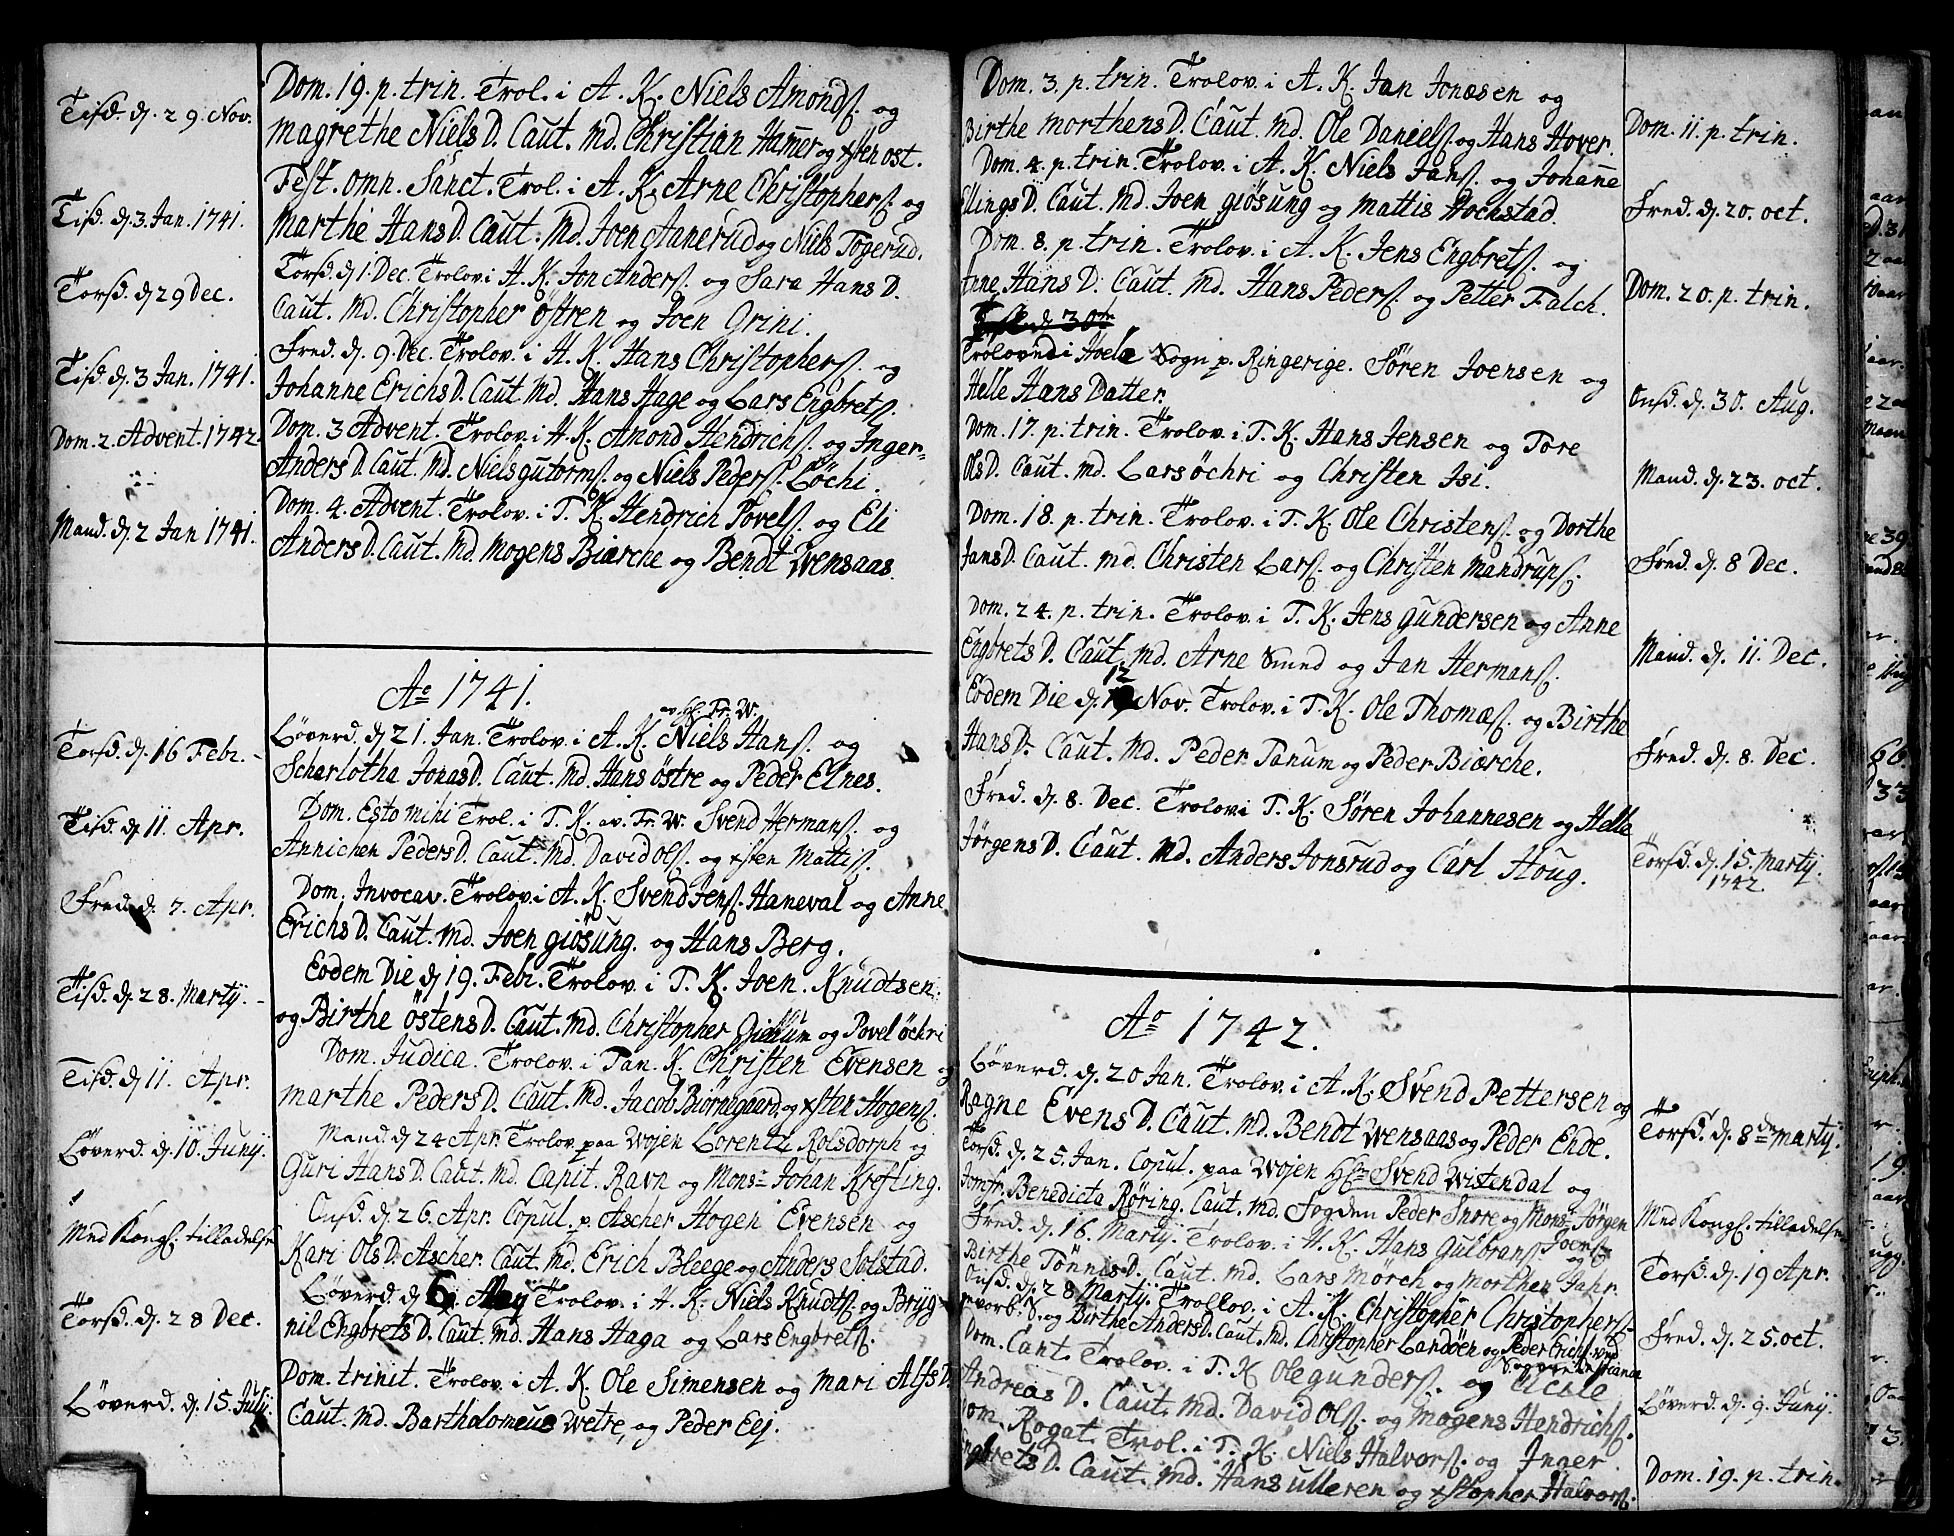 Dom. 19. p. trin. Trol. i A. K. Niels Amonds. og
Tisd. d. 29. Nov.
Magrethe Niels D. Caut. Md. Christian Hamer og Xsten ost.
Fest. omn. Sanct. Trol. i A. K. Arne Christophers. og
Tisd. d. 3. Jan. 1741.
Marthe Hans D. Caut. Md. Joen Aanerud og Niels Togerud.
Torsd. d. 1. Dec. Trolov. i H. K. Jon Anders. og Sara Hans D.
Torsd. d. 29 Dec.
Caut. Md. Christopher östren og Joen Grini.
Fred. d. 9. Dec. Trolov. i H. K. Hans Christophers. og
Tisd. d. 3 Jan. 1741.
Johanne Erichs D. Caut. Md. Hans Hage og Lars Engbrets.
Dom. 3 Advent. Trolov. i H. K. Amond Hendrichs. og Inger
Dom. 2. Advent. 1742.
Anders D. Caut. Md. Niels Gutorms. og Niels Peders. Löchi.
Dom. 4. Advent. Trolov. i T. K. Hendrich Povels. og Eli
Mand. d. 2 Jan 1741.
Anders D. Caut. Md. Mogens Biærche og Bendt Wensaas.
Ao 1741.
av hr. Fr. W.
Löverd. d. 21. Jan. Trolov. i A. K. Niels Hans. og
Torsd. d. 16 Febr.
Scharlotha Jonas D. Caut. Md. Hans östre og Peder Elnes.
Dom. Esto mihi Trol. i T. K. av. Fr. W. Svend Hermans. og
Tisd. d. 11. Apr.
Annichen Peders D. Caut. Md. David Ols. og Xsten Mattis.
Dom. Invocav. Trolov. i A. K. Svend Jens. Haneval og Anne
Fred. d. 7. Apr.
Erichs D. Caut. Md. Joen Giösung. og Hans Berg.
Eodem Die d. 19. Febr. Trolov. i T. K. Joen. Knudtsen.
Tisd. d. 28. Martij.
og Birthe östens D. Caut. Md. Christopher og Povel öchri
Dom. Judica. Trolov. i Tan. K. Christen Evensen og
Tisd. d. 11. Apr.
Marthe Peders D. Caut. Md. Jacob Biörnegaard og Xsten Hogens.
Mand. d. 24 Apr. Trolov. paa Wojen Lorentz Rolsdorph og
Löverd. d. 10. Junij.
Guri Hans D. Caut. Md. Capit. Ravn og Mons. Johan Krefting.
Onsd. d. 26. Apr. Copul. p. Ascher Hogen Evensen og
Med Kongs. tilladelse
Kari Ols D. Ascher. Caut. Md. Erich Bleege og Anders Solstad.
Löverd. d. 6. May Trolov. i H. K. Niels Knudts. og Bryg-
Torsd. d. 28 Dec.
nil Engbrets D. Caut. Md. Hans Haga og Lars Engbrets.
Dom. trinit. Trolov. i A. K. Ole Simensen og Mari Alfs D.
Löverd. d. 15. Julij.
Caut. Md. Bartholomeus Wetre, og Peder Eej.
Dom. 3. p. trin. Trolov. i A. K. Jan Jonæsen og
Birthe Morthens D. Caut. Md. Ole Daniels. og Hans Hover.
Dom. 11. p. trin.
Dom. 4. p. trin. Trolov. i A. K. Niels Jans. og Johanne
Ellings D. Caut. Md. Joen Giösung og Mattis Hochstad.
Fred. d. 20. oct.
Dom. 8. p. trin. Trolov. i A. K. Jens Engbrets. og
Anne Hans D. Caut. Md. Hans Peders. og Petter Falch.
Dom. 20. p. trin.
Trolovned i Hoele Sogn p. Ringerige. Sören Joensen og
Helle Hans Datter.
Onsd. d. 30. Aug.
Dom. 17. p. trin. Trolov. i T. K. Hans Jensen og Tore
Ols D. Caut. Md. Lars öchri og Christen Isi.
Mand. d. 23. oct.
Dom. 18. p. trin. Trolov. i T. K. Ole Christens. og Dorthe
Jans D. Caut. Md. Christen Lars. og Christen Mandrups.
Fred. d. 8 Dec.
Dom. 24. p. trin. Trolov. i T. K. Jens Gundersen og Anne
Engbrets D. Caut. Md. Arne Smed og Jan Hermans.
Mand. d. 11. Dec.
Eodem Die d. 12 Nov. Trolov. i T. K. Ole Thomæs. og Birthe
Hans D. Caut. Md. Peder Tanum og Peder Biærche.
Fred. d. 8. Dec.
Fred. d. 8. Dec. Trolov i T. K. Sören Johannesen og Helle
Jörgens D. Caut. Md. Anders Jonsrud og Carl Houg.
Torsd. d. 15. Martij
1742.
Ao 1742.
Löverd. d. 20 Jan. Trolov. i A. K. Svend Pettersen og
Ragne Evens D. Caut. Md. Bendt Wensaas og Peder Ende.
Torsd. d. 8de Martij.
Torsd. d. 25. Jan. Copul. paa Wojen Hr. Svend Wistendal og
Jomfr. Benedicta Röring. Caut. Md. Fogden Peder Snore og Mons. Jörgen
Med Kongs. tilladelse
Fred. d. 16. Martij. Trolov. i H. K. Hans Gulbrans. og
Birthe Tönnis D. Caut. Md. Lars Mörch og Morthen Jahr.
Torsd. d. 19 Apr.
Onsd. d. 28 Martij. Trollov. i A. K. Christopher Christophers.
og Birthe Anders D. Caut. Md. Christopher Landöen og Peder Erichs.
Fred. d. 25. oct.
Dom. Cant. Trolov. i T. K. Ole Gunders. og
Andreas D. Caut. Md. David Ols. og Mogens Hendrichs.
Löverd. d. 9. Junij.
Dom. Rogat. Trol. i T. K. Niels Halvors. og Inger
Engbrets D. Caut. Md. Hans Ulleren og Xstopher Halvors.
Dom. 19. p. trin.